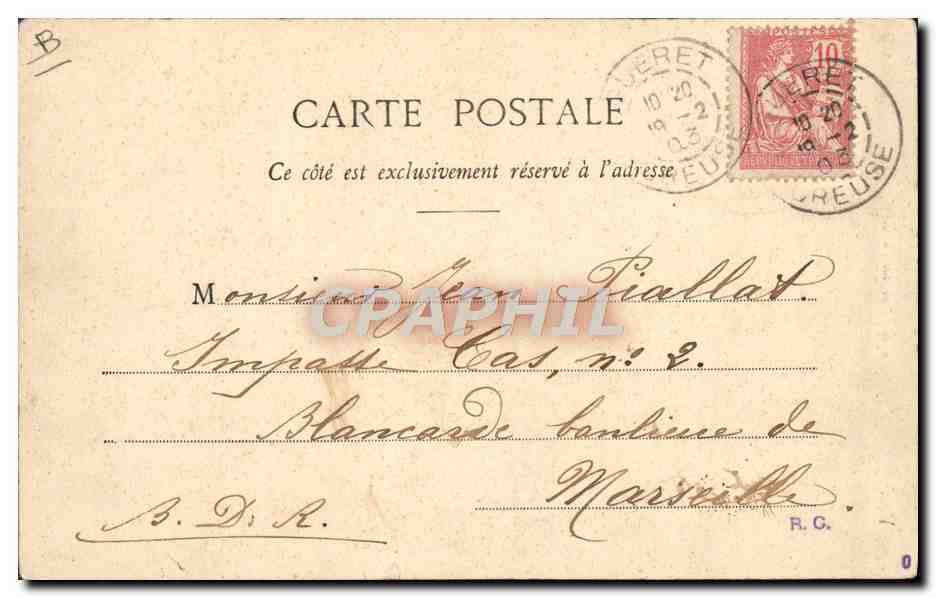 B
POSTES
10
GUERET
10 20
19 -2
03
CREUSE
GUERET
10 20
19 -2
03
CREUSE
CARTE POSTALE
Ce côté est exclusivement réservé à l'adresse
Monsieur Jean Piallat.
CPAPHIL
Impasse Cas, n° 2.
Blancarde banlieue de
Marseille.
B. D. R.
R. C.
0